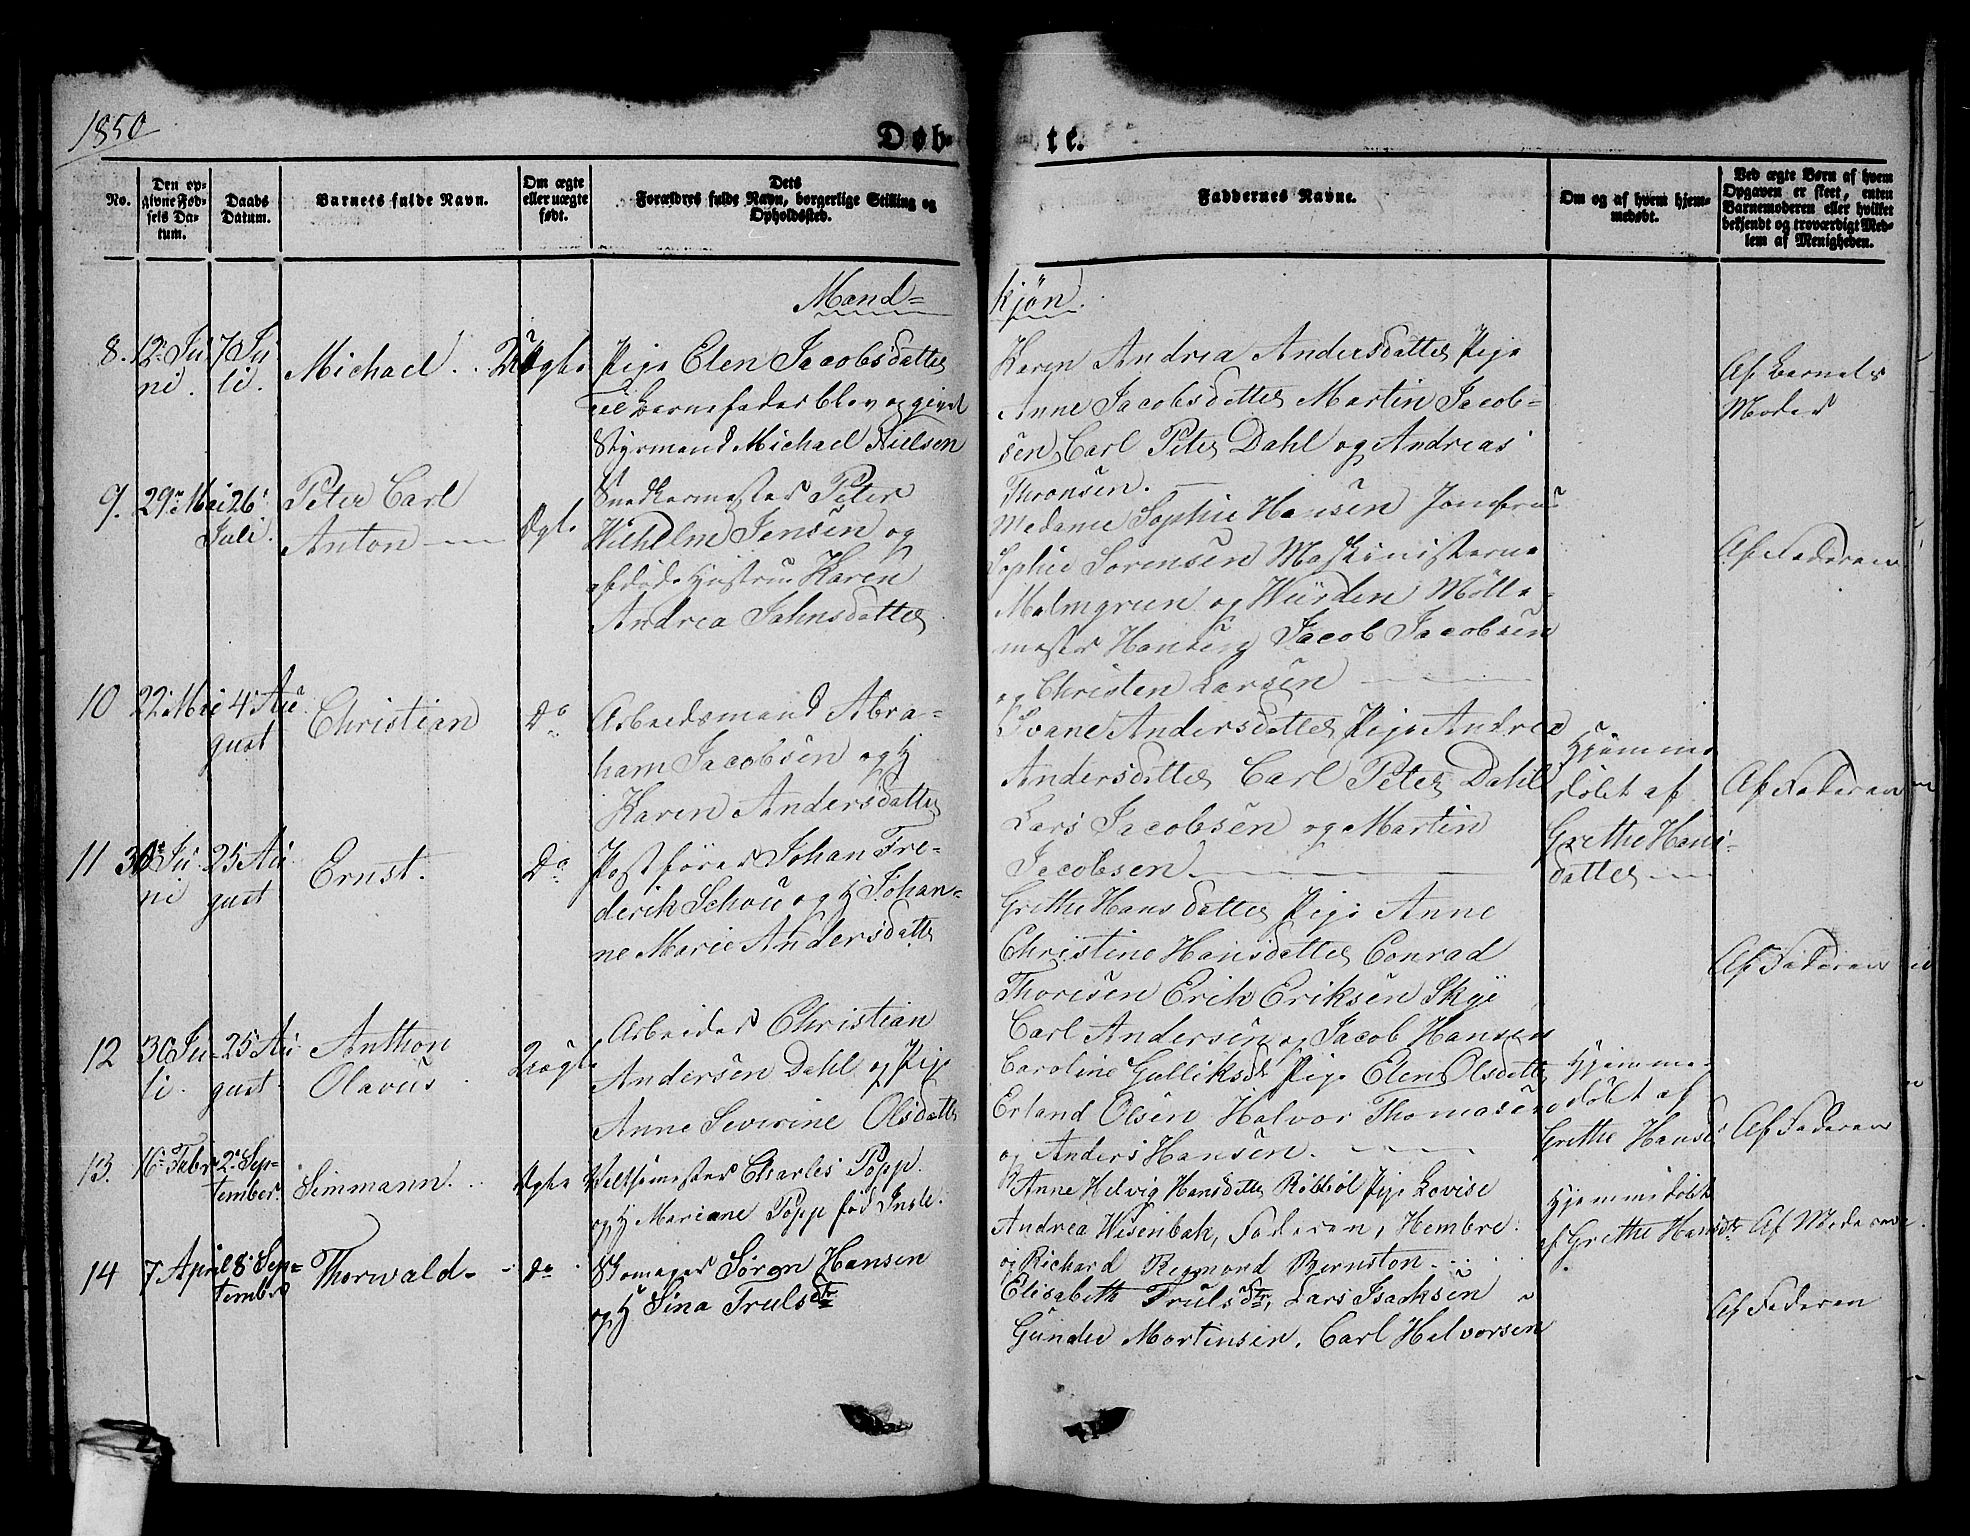 1850
Døb-te.
No.
Den op-
givne Fød-
sels Da-
tum.
Daabs
Datum.
Barnets fulde Navn.
Om ægte
eller uægte
født.
Dets
Forældres fulde Navn, borgerlige Stilling og
Opholdssted.
Faddernes Navne.
Om og af hvem hjem-
medøbt.
Ved ægte Børn af hvem
Opgaven er skeet, enten
Barnemoderen eller hvilket
bekjendt og troværdigt Med-
lem af Menigheden.
Mand=kjøn.
8. 12 Ju
ni.
7 Ju
li.
Michael.
Uægte
Pige Elen Jacobsdatter
til Barnefader blev opgivet
Styrmand Michael Nielsen
Karen Andrea Andersdatter Pige
Anne Jacobsdatter Martin Jacob-
sen, Carl Peter Dahl og Andreas
Thronsen.
Af Barnets
Moder
9. 29 Mai
26
Juli.
Peter Carl
Anton
Ægte
Snedkermester Peter
Wilhelm Jensen og
afdøde Hustru Karen
Andrea Jahnsdatter
Madame Sophie Hansen Jomfru
Sophie Sørensen Maskinisterne
Malmgreen og Würden Mølle-
mester Hansen, Jacob Jacobsen
og Christen Larsen
Af Faderen
10 22 Mai
4 Au
gust
Christian
Do
Arbeidsmand Abra-
ham Jacobsen og H
Karen Andersdatter
Svane Andersdatter Pige Andrea
Andersdatter Carl Peter Dahl
Lars Jacobsen og Martin
Jacobsen.
Hjemme
døbt af
Grethe Hans-
datter
Af Faderen
11 30 Ju
ni
25 Au
gust
Ernst.
Do
Postfører Johan Fre-
derik Schou og H Johan-
ne Marie Andersdatter
Grethe Hansdatter Pige Anne
Christine Hansdatter Conrad
Thoresen Erik Eriksen Skye
Carl Andersen og Jacob Hansen
Af Faderen
12 30 Ju-
li.
25 Au
gust.
Anthon
Olavus
Uægte
Arbeider Christian
Andersen Dahl og Pige
Anne Severine Olsdatter
Caroline Gulliksdr Pige Elen Olsdatter
Erland Olsen Halvor Thomasen
og Anders Hansen.
Hjemme-
døbt af
Grethe Hansd
Af Faderen
13. 16 Febr
2 Sep-
tember.
Simmann.
Ægte
Charles Popp.
og H Mariane Popp fød
Anne Helvig Hansdatter Pige Lovise
Andrea Wisenbak, Faderen, Hembre
og Richard Bernston
Hjemmedøbt
af Grethe Hansdr
Af Moderen
14 7 April
8 Sep-
tember
Thorwald-
do
Skomager Søren Hansen
og H Sina Trulsdtr
Elisabeth Trulsdtr, Lars Isachsen
Gunder Mortensen, Carl Halvorsen
Af Faderen